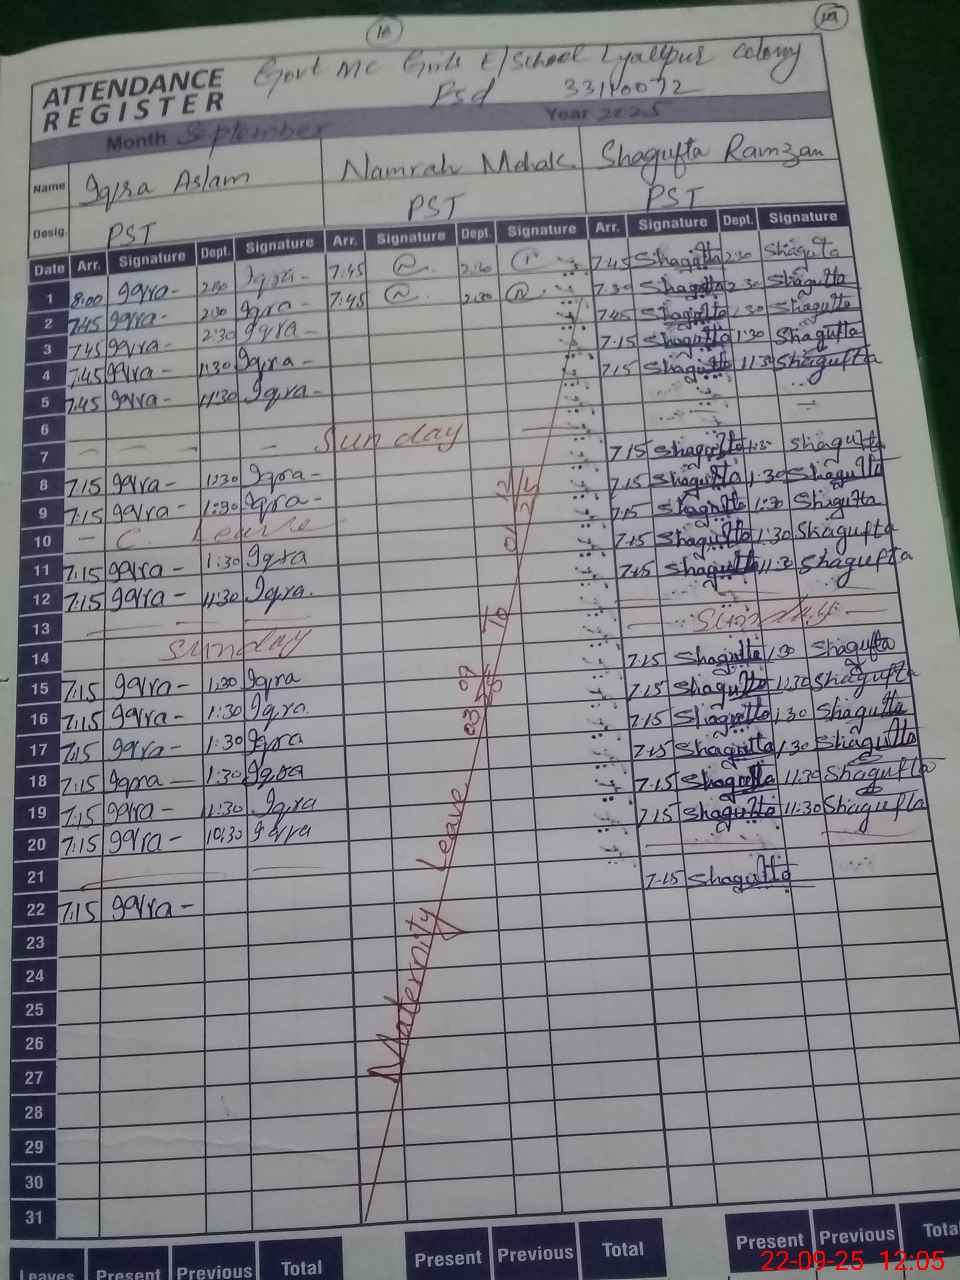 1A
1A
ATTENDANCE REGISTER
Govt MC Girls E/School Lyallpur Colony
Fsd 33110072
Month September Year 2025
Name Iqra Aslam Namrah Mehak Shagufta Ramzan
Desig. PST PST PST
Date Arr. Signature Dept. Signature Arr. Signature Dept. Signature Arr. Signature Dept. Signature
1 8:00 Iqra 2:30 Iqra 7:45 2:30 7:45 Shagufta 2:30 Shagufta
2 7:45 Iqra 2:30 Iqra 7:45 2:30 7:30 Shagufta 2:30 Shagufta
3 7:45 Iqra 2:30 Iqra 7:45 Shagufta 1:30 Shagufta
4 7:45 Iqra 1:30 Iqra 7:15 Shagufta 1:30 Shagufta
5 7:45 Iqra 11:30 Iqra 7:15 Shagufta 11:30 Shagufta
6
7 Sunday
8 7:15 Iqra 1:30 Iqra 7:15 Shagufta 1:30 Shagufta
9 7:15 Iqra 1:30 Iqra 7:15 Shagufta 1:30 Shagufta
10 C. Leave 7:15 Shagufta 1:30 Shagufta
11 7:15 Iqra 1:30 Iqra 7:15 Shagufta 1:30 Shagufta
12 7:15 Iqra 11:30 Iqra 7:15 Shagufta 11:30 Shagufta
13
14 Sunday Sunday
15 7:15 Iqra 1:30 Iqra 7:15 Shagufta 1:30 Shagufta
16 7:15 Iqra 1:30 Iqra 7:15 Shagufta 11:30 Shagufta
17 7:15 Iqra 1:30 Iqra 7:15 Shagufta 1:30 Shagufta
18 7:15 Iqra 1:30 Iqra 7:15 Shagufta 1:30 Shagufta
19 7:15 Iqra 11:30 Iqra 7:15 Shagufta 11:30 Shagufta
20 7:15 Iqra 10:30 Iqra 7:15 Shagufta 11:30 Shagufta
21
22 7:15 Iqra 7:15 Shagufta
23
24
25
26
27
28
29
30
31
Maternity Leave 03 09 25 To 01 12 25
Leaves Present Previous Total Present Previous Total Present Previous Total
22-09-25 12:05